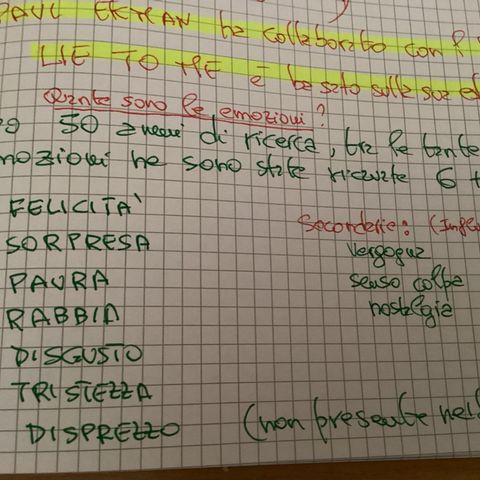 PAUL EKMAN ha collaborato con
LIE TO ME e basato sulle sue
Quante sono le emozioni?
50 anni di ricerca, tra le tante
emozioni ne sono state ricavate 6 +
FELICITA'
SORPRESA
PAURA
RABBIA
DISGUSTO
TRISTEZZA
DISPREZZO (non presente
Secondarie:
vergogna
senso colpa
nostalgia